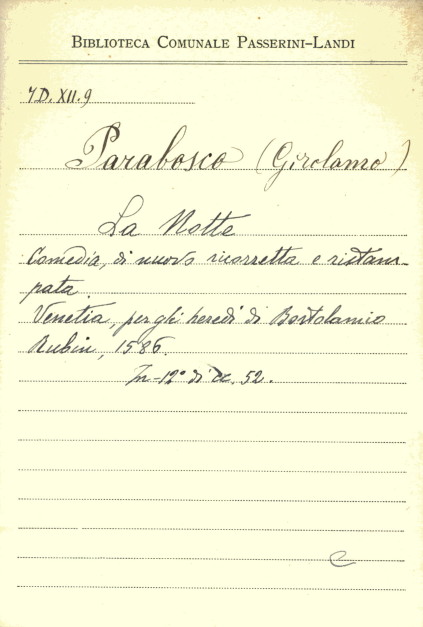 BIBLIOTECA COMUNALE PASSERINI-LANDI
7D. XII. 9
Parabosco (Girolamo)
La Notte
Comedia, di nuovo ricorretta e ristam-
pata.
Venetia, per gli heredi di Bortolamio
Rubin, 1586.
In-12° di cc. 52.